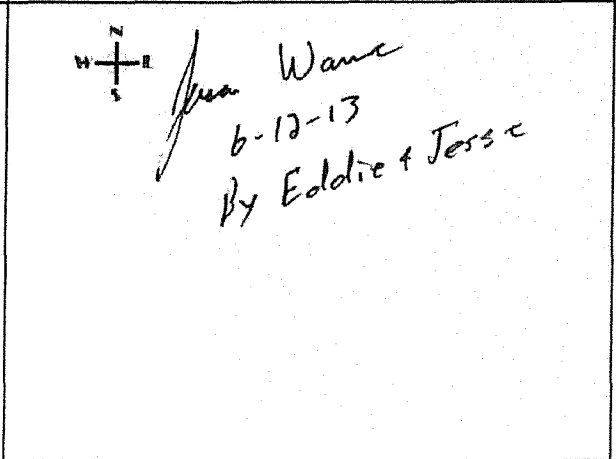 N
W E
S
Wane
6-12-13
By Eddie & Jesse